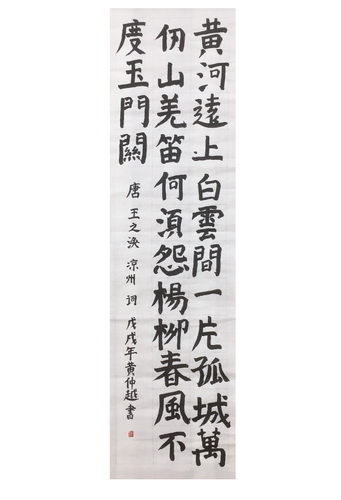 黄河遠上白雲間一片孤城萬
仞山羌笛何須怨楊柳春風不
度玉門關
唐王之渙涼州詞戊戌年黄仲越書